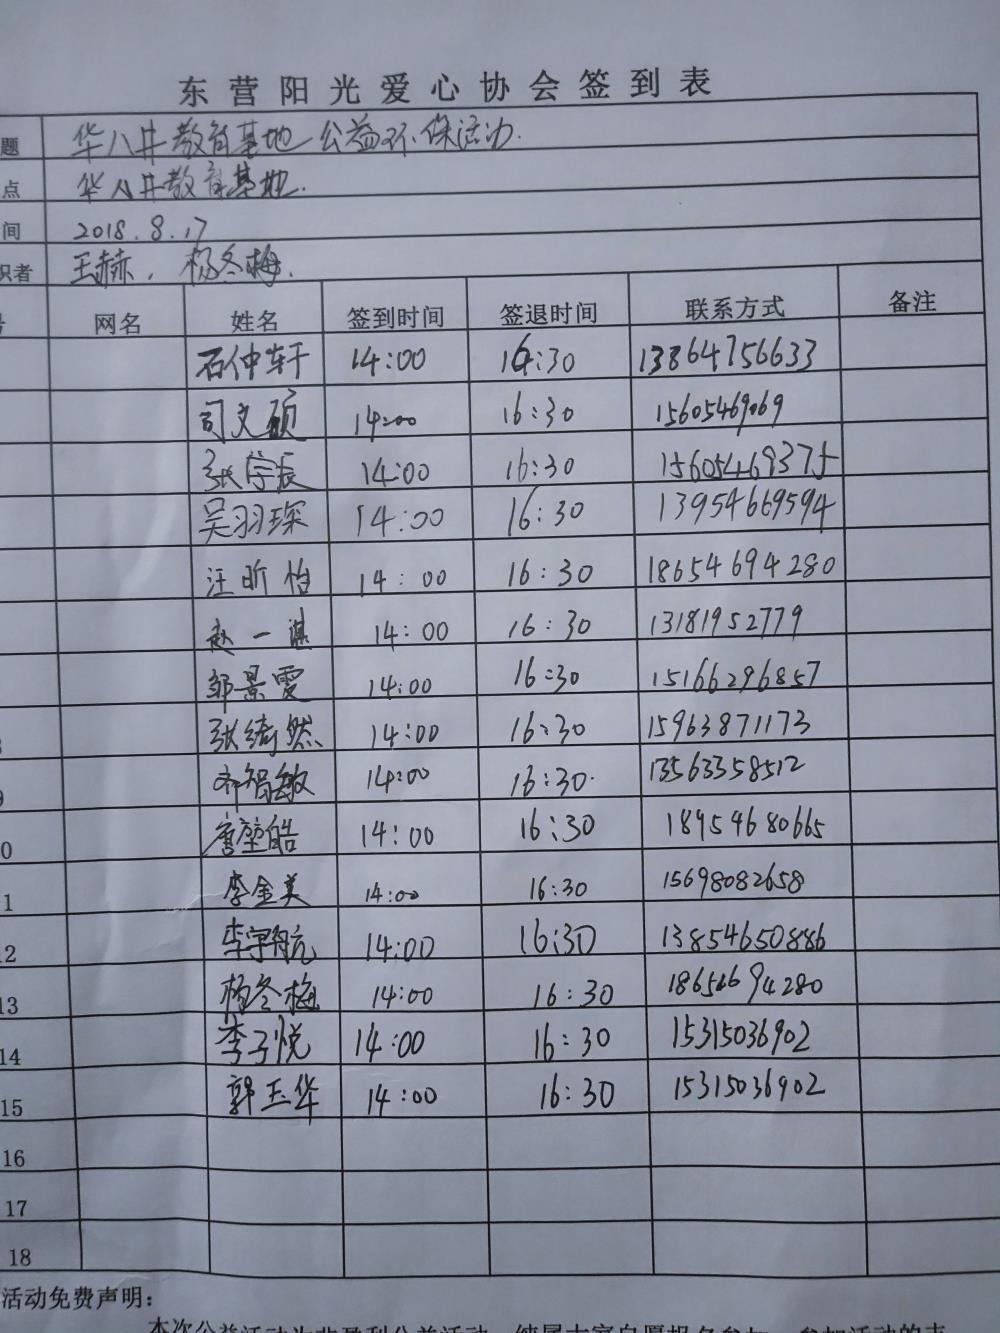 东营阳光爱心协会签到表
题 华八井教育基地公益环保活动.
点 华八井教育基地.
间 2018.8.17
织者 王赫、杨冬梅.
号 网名 姓名 签到时间 签退时间 联系方式 备注
石仲轩 14:00 16:30 13864756633
司文硕 14:00 16:30 15605469069
张学辰 14:00 16:30 15605469375
吴羽琛 14:00 16:30 13954669594
汪昕怡 14:00 16:30 18654694280
赵一 14:00 16:30 13181952779
邹景雯 14:00 16:30 15166296857
张绮然 14:00 16:30 15963871173
9 智敏 14:00 16:30 13563358512
0 唐堃皓 14:00 16:30 18954680665
1 李金美 14:00 16:30 15698082658
12 李宇航 14:00 16:30 13854650886
13 杨冬梅 14:00 16:30 18654694280
14 李子悦 14:00 16:30 15315036902
15 郭玉华 14:00 16:30 15315036902
16
17
18
活动免费声明：
本次公益活动为非盈利公益活动，纯属大家自愿报名参加，参加活动的志